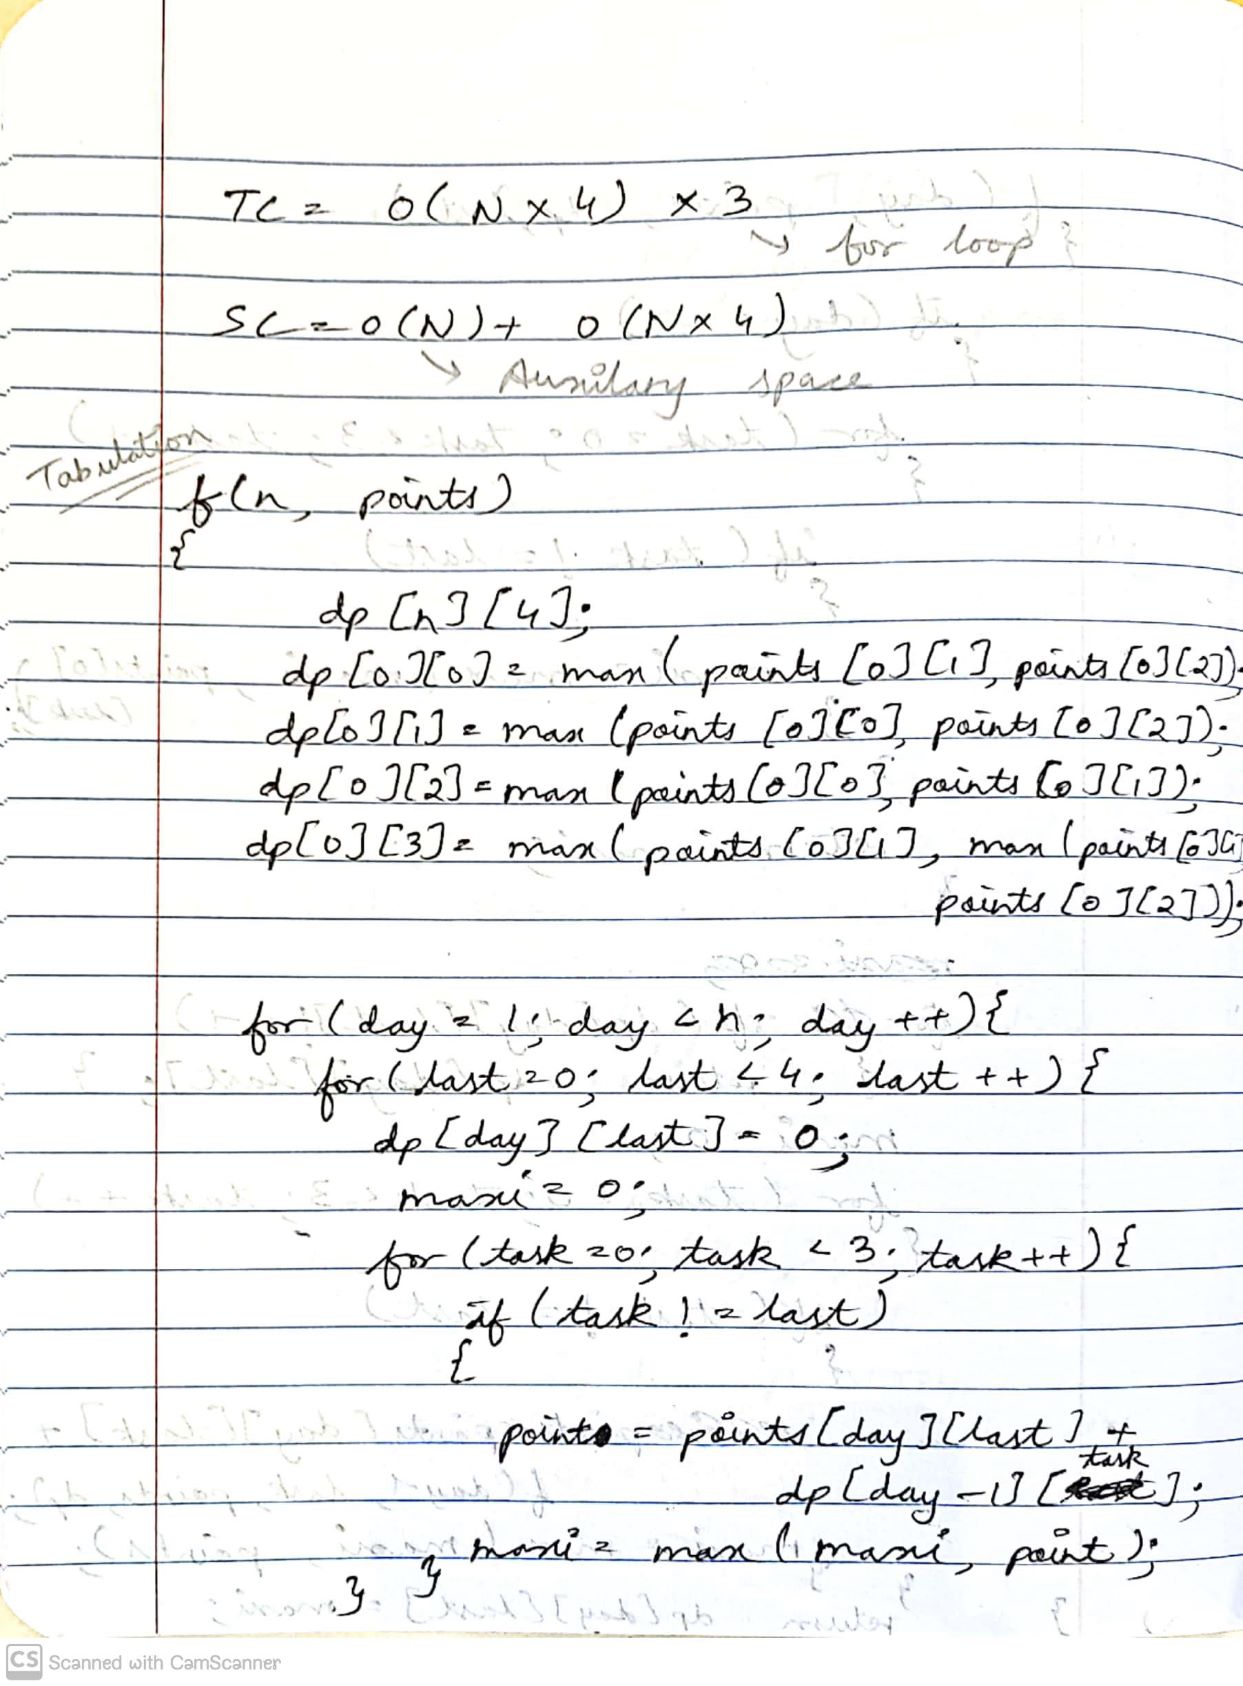 TC = O(N x 4) x 3
↘ for loop
SC = O(N) + O(N x 4)
↘ Auxilary space
Tabulation
f(n, points)
{
dp [n][4];
dp [0][0] = max ( points [0][1], points [0][2]);
dp[0][1] = max (points [0][0], points [0][2]);
dp[0][2] = max (points [0][0], points [0][1]);
dp[0][3] = max ( points [0][1], max (points [0][1]
points [0][2]));
for ( day = 1; day < n; day ++){
for ( last = 0; last < 4; last ++) {
dp [day] [last] = 0;
maxi = 0;
for (task = 0; task < 3; task++) {
if (task != last)
{
point = points [day][last] +
task
dp [day -1] [ ];
maxi = max ( maxi, point );
} }
CS Scanned with CamScanner